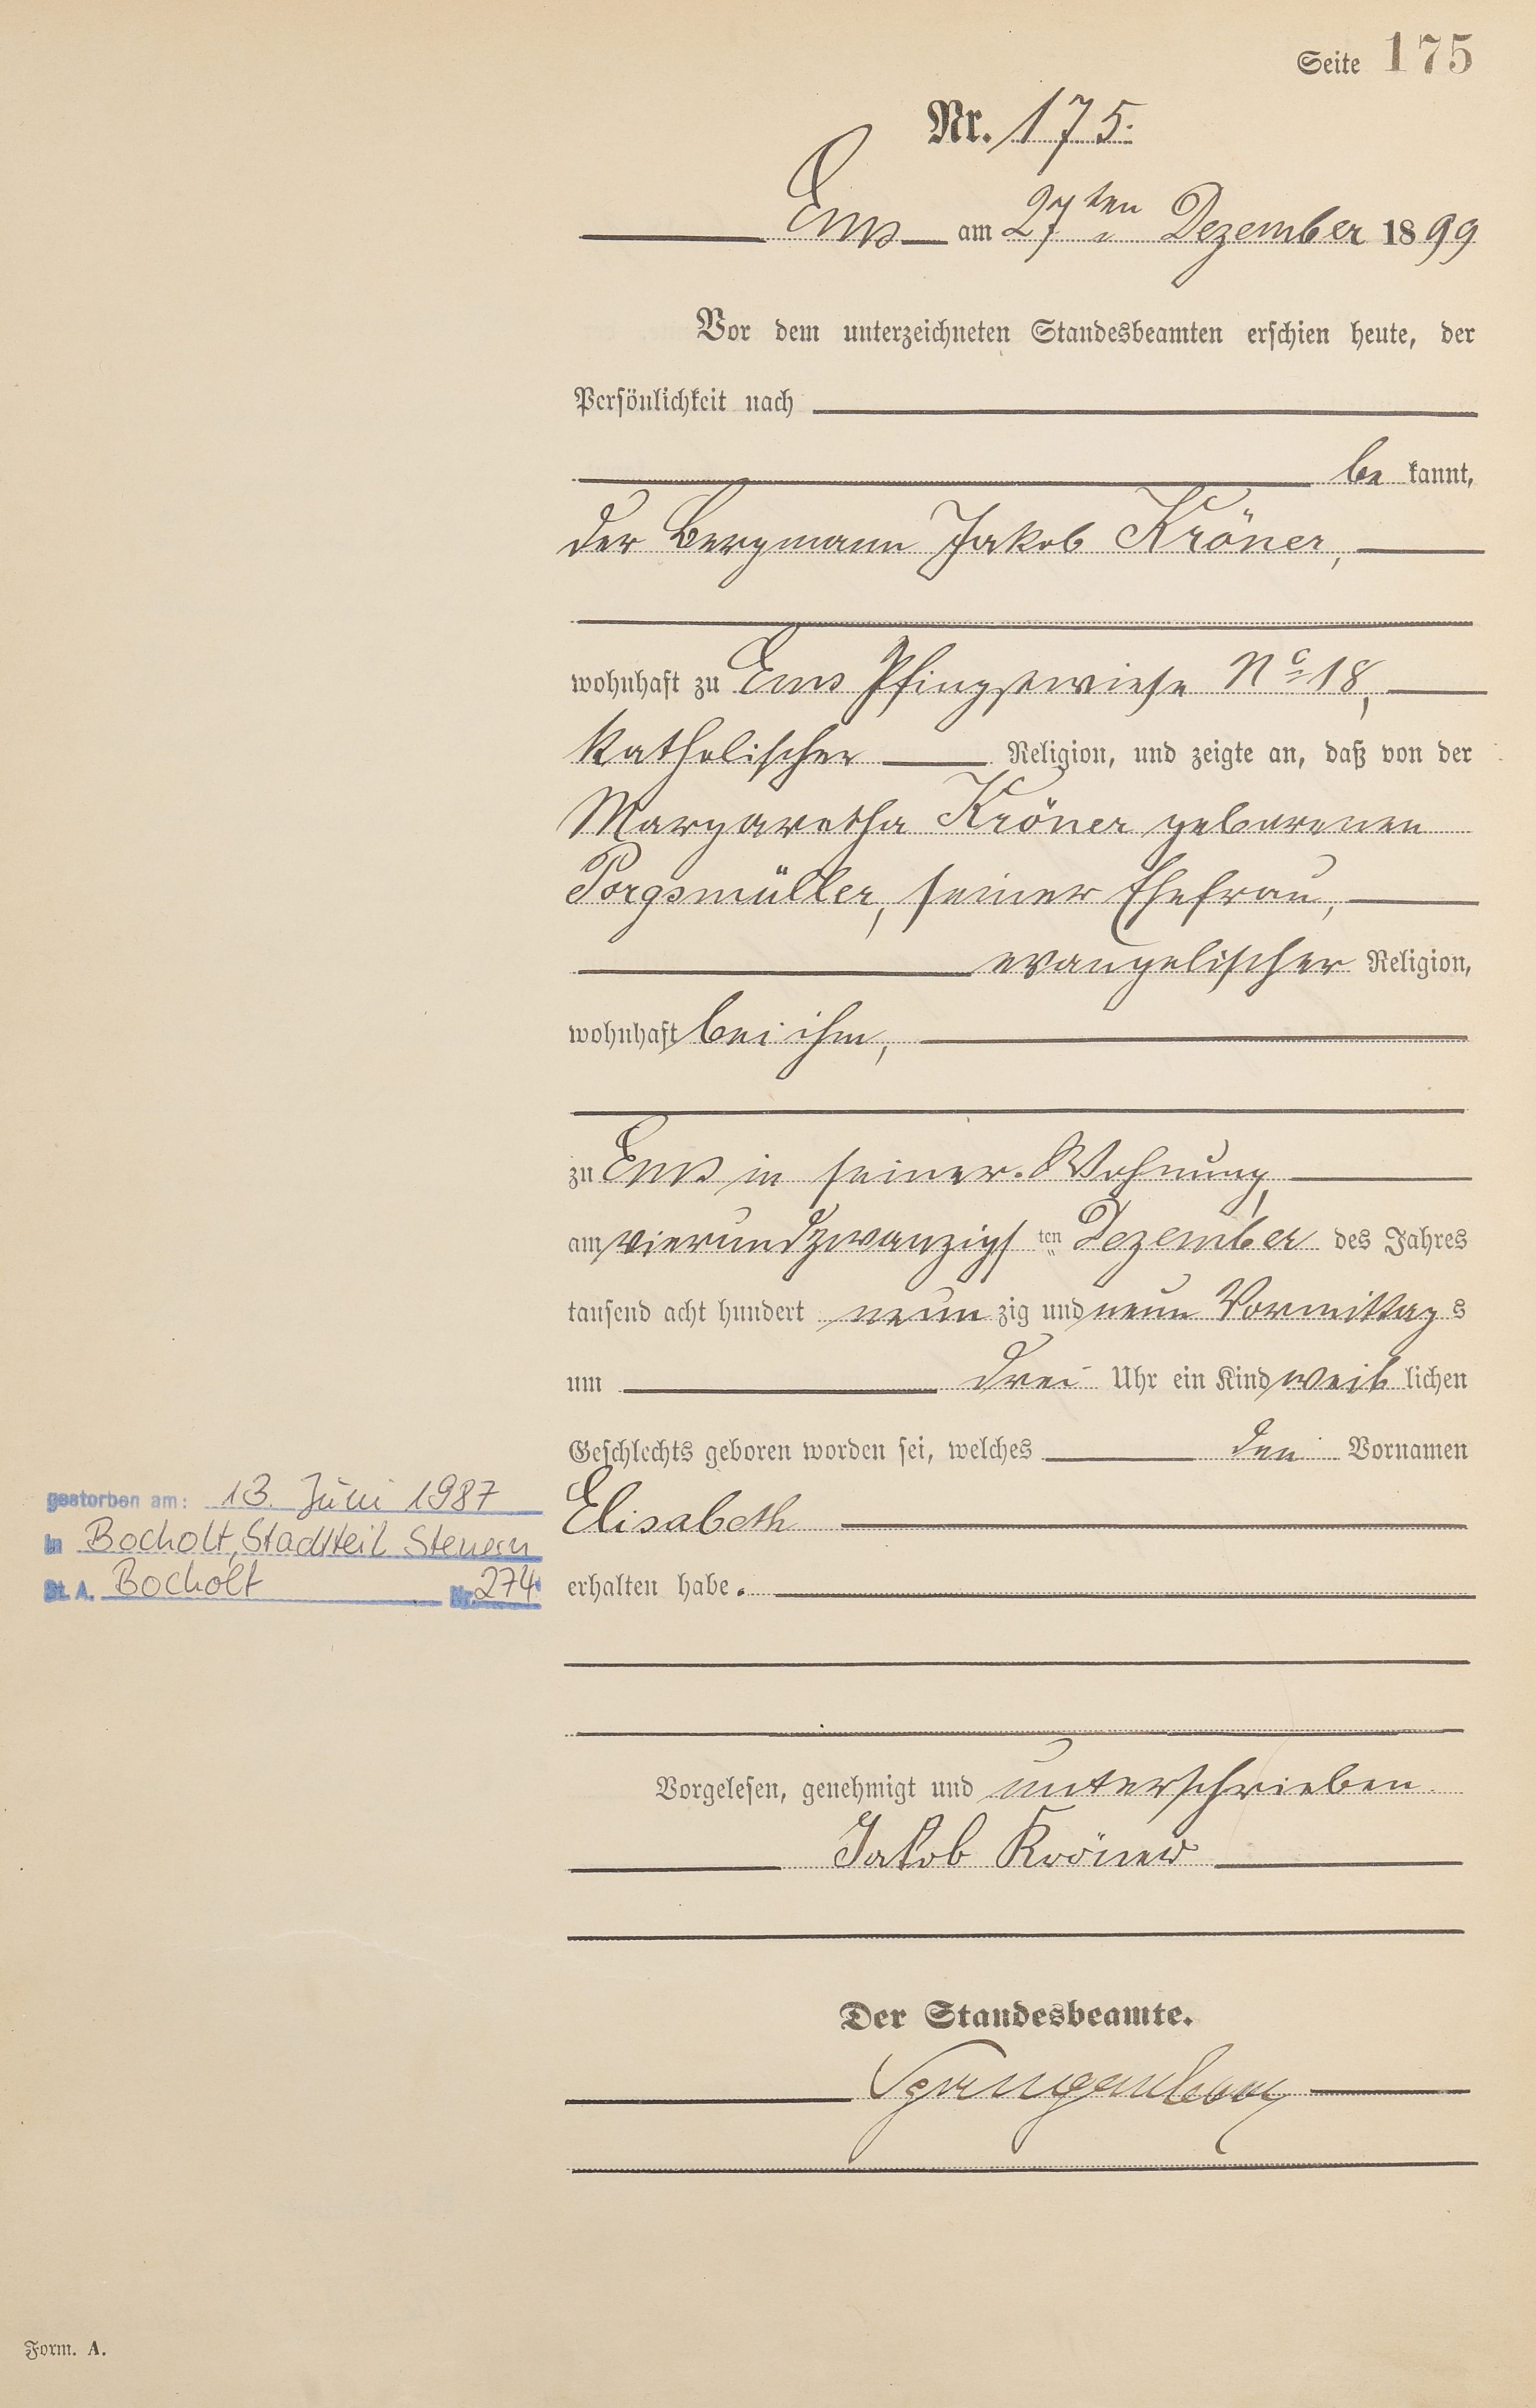 Seite 175
Nr. 175.
Ems am 27ten Dezember 1899
Vor dem unterzeichneten Standesbeamten erschien heute, der
Persönlichkeit nach
be kannt,
der Bergmann Jakob Kröner,
wohnhaft zu Ems Pfingstwiese No 18,
katholischer Religion, und zeigte an, daß von der
Margaretha Kröner geborenen
Porgsmüller, seiner Ehefrau,
evangelischer Religion,
wohnhaft bei ihm,
zu Ems in seiner Wohnung,
am vierundzwanzigsten Dezember des Jahres
tausend acht hundert neun zig und neun Vormittags
um drei Uhr ein Kind weib lichen
Geschlechts geboren worden sei, welches den Vornamen
Elisabeth
erhalten habe.
gestorben am: 13. Juni 1987
in Bocholt, Stadtteil Stenern
St. A. Bocholt Nr. 274
Vorgelesen, genehmigt und unterschrieben.
Jakob Kröner
Der Standesbeamte.
Spangenberg
Form. A.